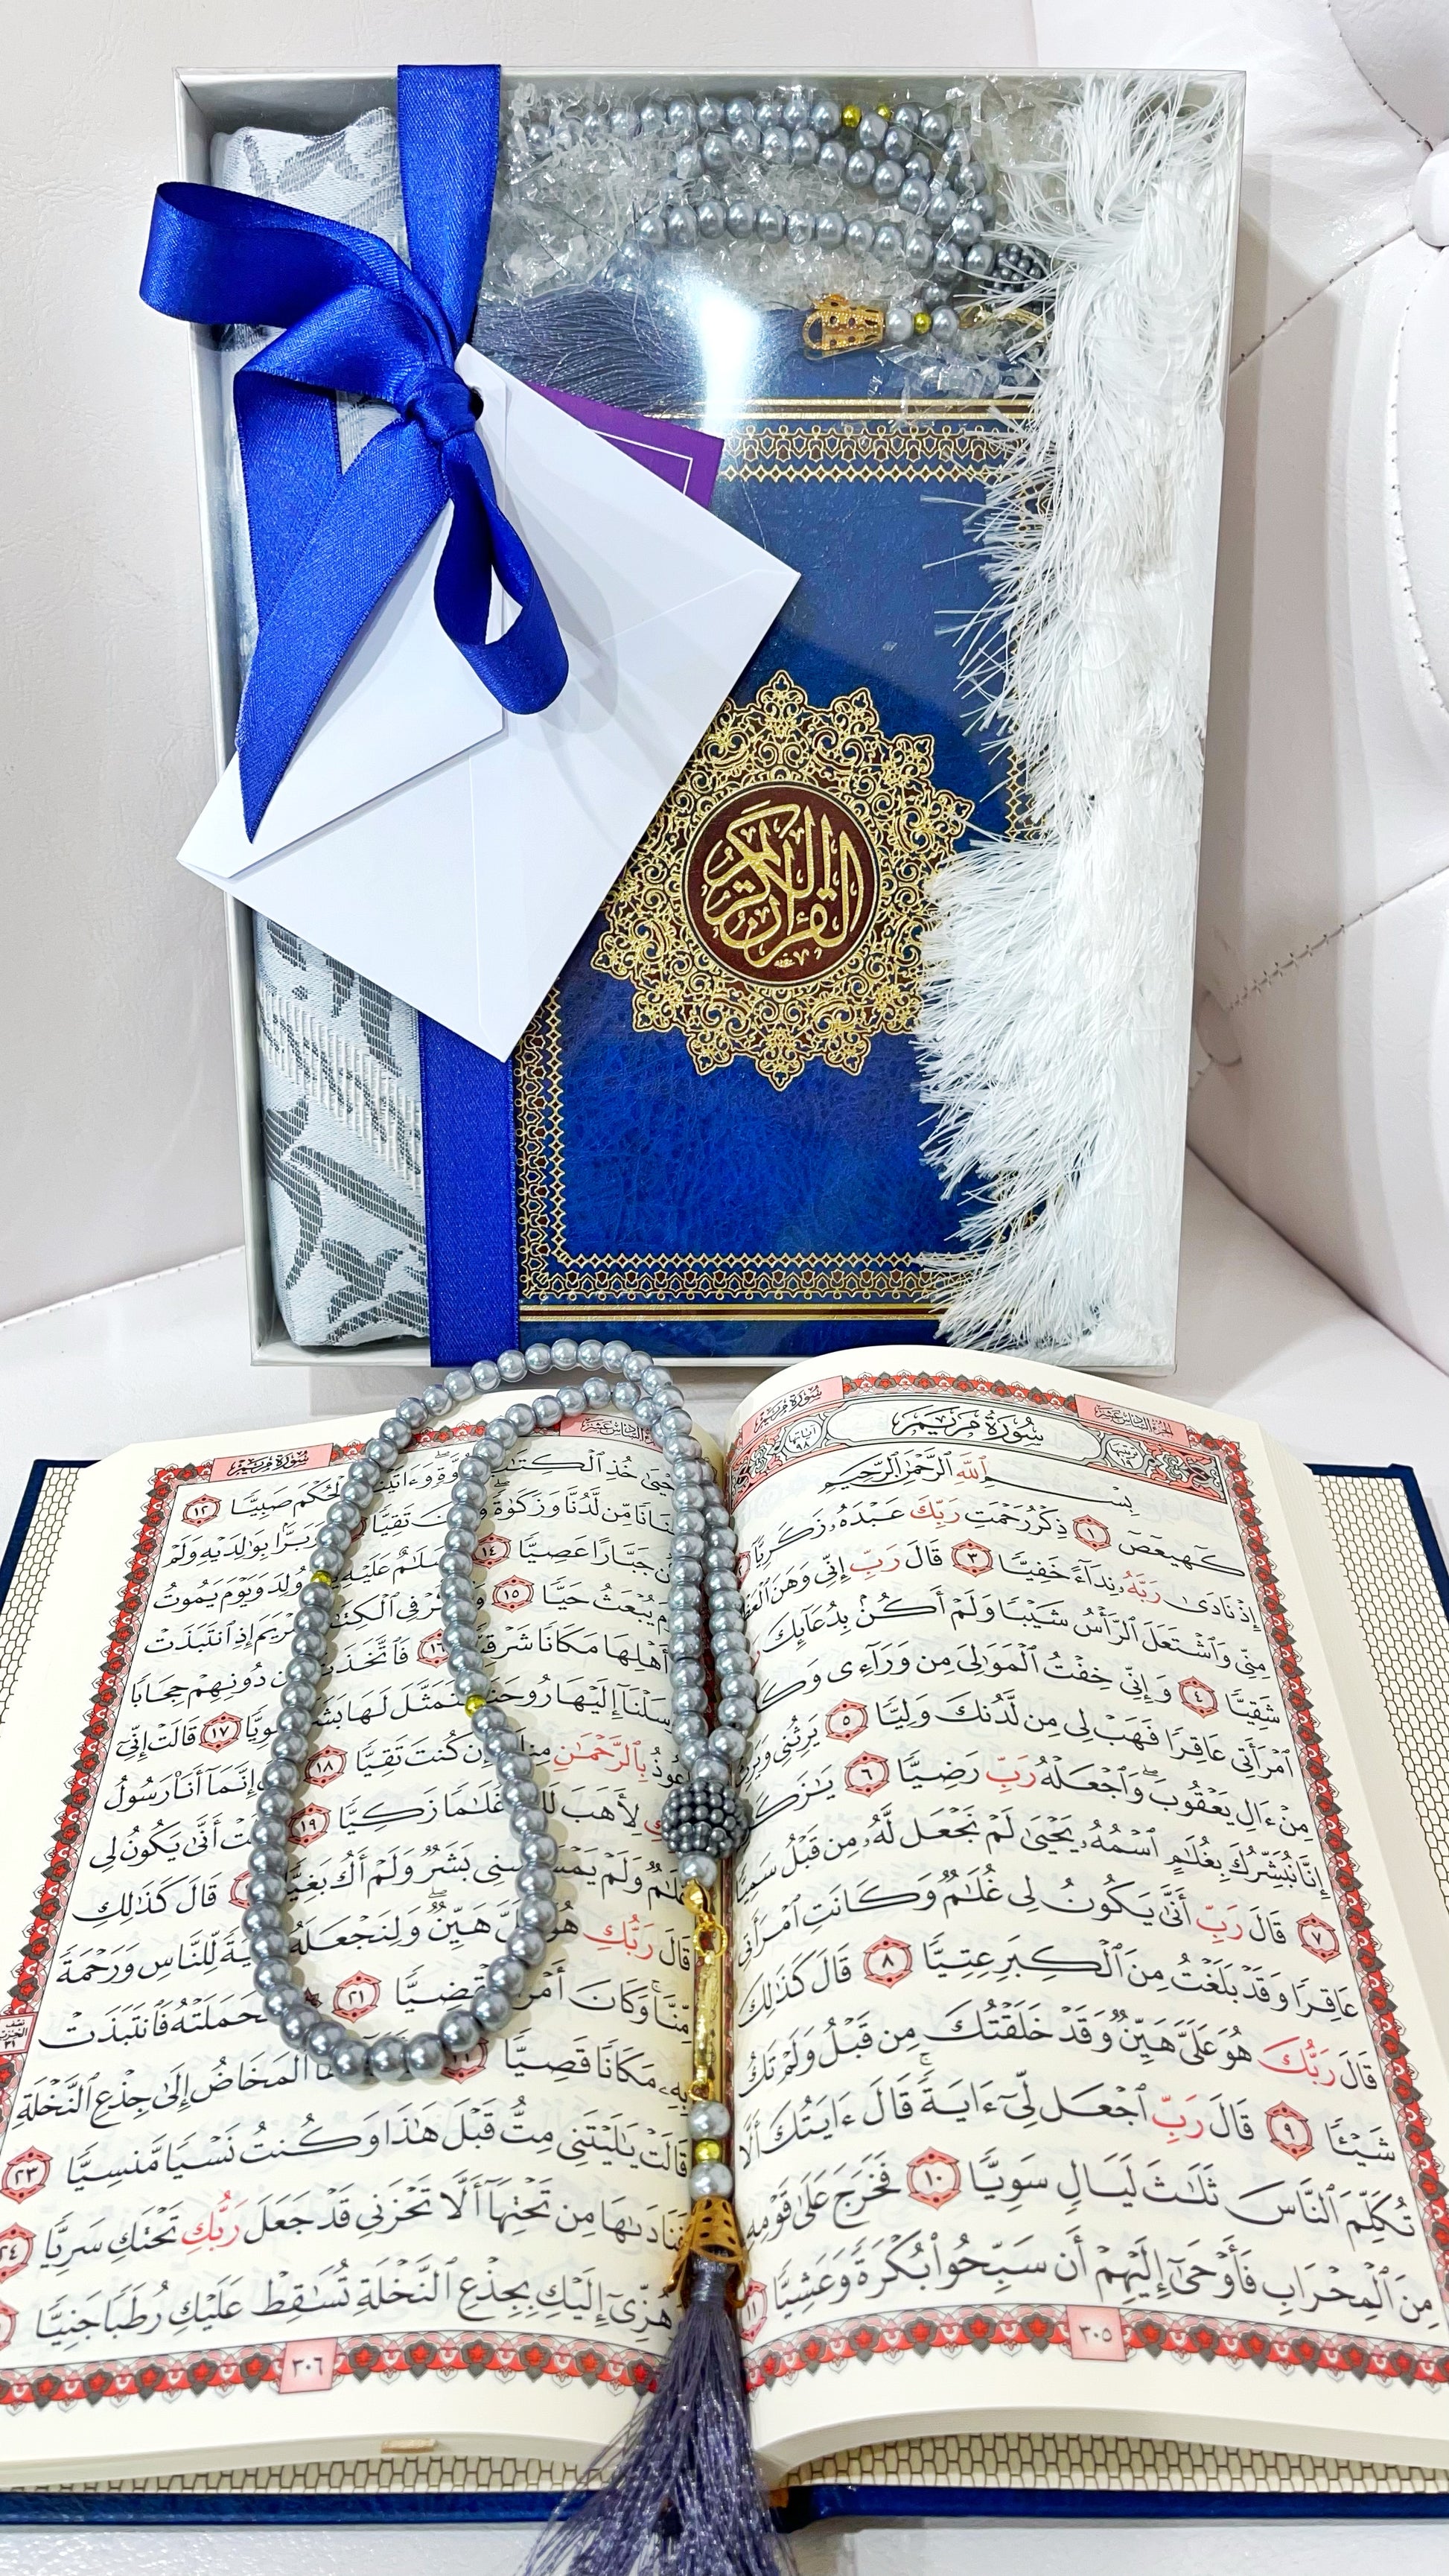 القرآن الكريم
سورة مريم
سُورَةُ مَرْيَمَ
آياتها ٩٨
بِسْمِ ٱللَّهِ ٱلرَّحْمَٰنِ ٱلرَّحِيمِ
كٓهيعٓصٓ ١ ذِكْرُ رَحْمَتِ رَبِّكَ عَبْدَهُۥ زَكَرِيَّآ
إِذْ نَادَىٰ رَبَّهُۥ نِدَآءً خَفِيًّا ٣ قَالَ رَبِّ إِنِّى وَهَنَ
مِنِّى وَٱشْتَعَلَ ٱلرَّأْسُ شَيْبًا وَلَمْ أَكُنۢ بِدُعَآئِكَ
شَقِيًّا ٤ وَإِنِّى خِفْتُ ٱلْمَوَٰلِىَ مِن وَرَآءِى
ٱمْرَأَتِى عَاقِرًا فَهَبْ لِى مِن لَّدُنكَ وَلِيًّا ٥ يَرِثُنِى
مِنْ ءَالِ يَعْقُوبَ ۖ وَٱجْعَلْهُ رَبِّ رَضِيًّا ٦
إِنَّا نُبَشِّرُكَ بِغُلَٰمٍ ٱسْمُهُۥ يَحْيَىٰ لَمْ نَجْعَل لَّهُۥ مِن قَبْلُ سَمِيًّا
٧ قَالَ رَبِّ أَنَّىٰ يَكُونُ لِى غُلَٰمٌ وَكَانَتِ ٱمْرَأَتِى
عَاقِرًا وَقَدْ بَلَغْتُ مِنَ ٱلْكِبَرِ عِتِيًّا ٨ قَالَ كَذَٰلِكَ
قَالَ رَبُّكَ هُوَ عَلَىَّ هَيِّنٌ وَقَدْ خَلَقْتُكَ مِن قَبْلُ وَلَمْ تَكُ
شَيْـًٔا ٩ قَالَ رَبِّ ٱجْعَل لِّىٓ ءَايَةً ۚ قَالَ ءَايَتُكَ أَلَّا
تُكَلِّمَ ٱلنَّاسَ ثَلَٰثَ لَيَالٍ سَوِيًّا ١٠ فَخَرَجَ عَلَىٰ قَوْمِهِۦ
مِنَ ٱلْمِحْرَابِ فَأَوْحَىٰٓ إِلَيْهِمْ أَن سَبِّحُوا۟ بُكْرَةً وَعَشِيًّا ١١
٣٠٥
سورة مريم
خُذِ ٱلْكِتَٰبَ ٱلْحُكْمَ صَبِيًّا ١٢
مِّن لَّدُنَّا وَزَكَوٰةً ۖ تَقِيًّا وَبَرًّۢا بِوَٰلِدَيْهِ وَلَمْ
جَبَّارًا عَصِيًّا ١٤ وَسَلَٰمٌ عَلَيْهِ وُلِدَ وَيَوْمَ يَمُوتُ
يُبْعَثُ حَيًّا ١٥ فِى ٱلْكِتَٰبِ مَرْيَمَ إِذِ ٱنتَبَذَتْ
أَهْلِهَا مَكَانًا شَرْقِيًّا ١٦ فَٱتَّخَذَتْ دُونِهِمْ حِجَابًا
إِلَيْهَا رُوحَنَا فَتَمَثَّلَ لَهَا بَشَرًا سَوِيًّا ١٧ قَالَتْ إِنِّىٓ
أَعُوذُ بِٱلرَّحْمَٰنِ إِن كُنتَ تَقِيًّا ١٨ إِنَّمَآ أَنَا۠ رَسُولُ
لِأَهَبَ غُلَٰمًا زَكِيًّا ١٩ أَنَّىٰ يَكُونُ لِى
غُلَٰمٌ وَلَمْ يَمْسَسْنِى بَشَرٌ وَلَمْ أَكُ بَغِيًّا قَالَ كَذَٰلِكِ
قَالَ رَبُّكِ هُوَ هَيِّنٌ ۖ وَلِنَجْعَلَهُۥٓ ءَايَةً لِّلنَّاسِ وَرَحْمَةً
مِّنَّا ۚ وَكَانَ أَمْرًا مَّقْضِيًّا ٢١ فَحَمَلَتْهُ فَٱنتَبَذَتْ
بِهِۦ مَكَانًا قَصِيًّا ٱلْمَخَاضُ إِلَىٰ جِذْعِ ٱلنَّخْلَةِ
قَالَتْ يَٰلَيْتَنِى مِتُّ قَبْلَ هَٰذَا وَكُنتُ نَسْيًا مَّنسِيًّا ٢٣
فَنَادَىٰهَا مِن تَحْتِهَآ أَلَّا تَحْزَنِى قَدْ جَعَلَ رَبُّكِ تَحْتَكِ سَرِيًّا ٢٤
وَهُزِّىٓ إِلَيْكِ بِجِذْعِ ٱلنَّخْلَةِ تُسَٰقِطْ عَلَيْكِ رُطَبًا جَنِيًّا
٣٠٦